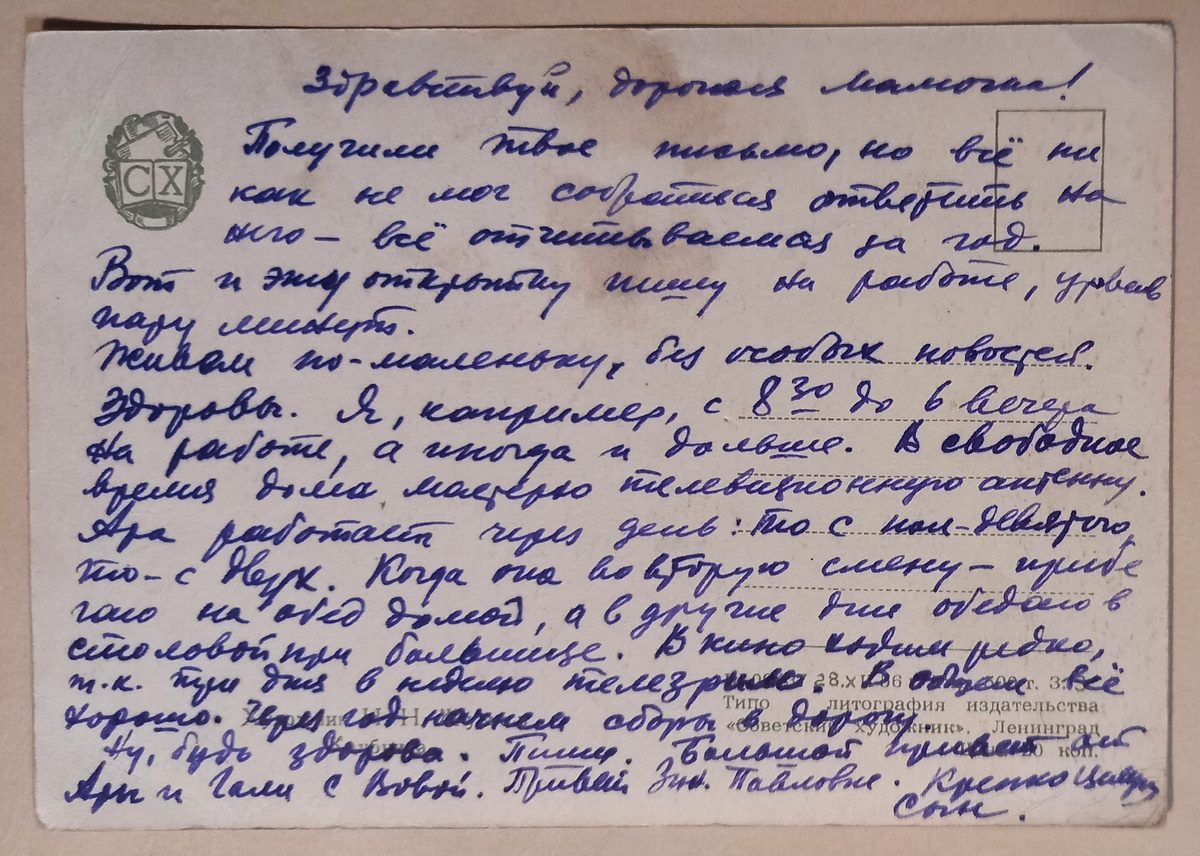 Здравствуй, дорогая мамочка!
Получили твое письмо, но всё ни
как не мог собраться ответить на
него – всё отчитываемся за год.
Вот и эту открытку пишу на работе, урвав
пару минут.
Живем по-маленьку, без особых новостей.
Здоровы. Я, например, с 8 30 до 6 вечера
на работе, а иногда и дольше. В свободное
время дома мастерю телевизионную антенну.
Ара работает через день: то с пол-девятого,
то – с двух. Когда она во вторую смену – прибе
гаю на обед домой, а в другие дни обедаю в
столовой при больнице. В кино ходим редко,
т.к. три дня в неделю телезрим. В общем всё
хорошо. Через год начнем сборы в дорогу.
Ну, будь здорова. Пиши. Большой привет от
Ары и Гали с Вовой. Привет Зин. Павловне. Крепко целую
Сын.
СХ
28.XI
Типо литография издательства
«Советский художник». Ленинград
коп.